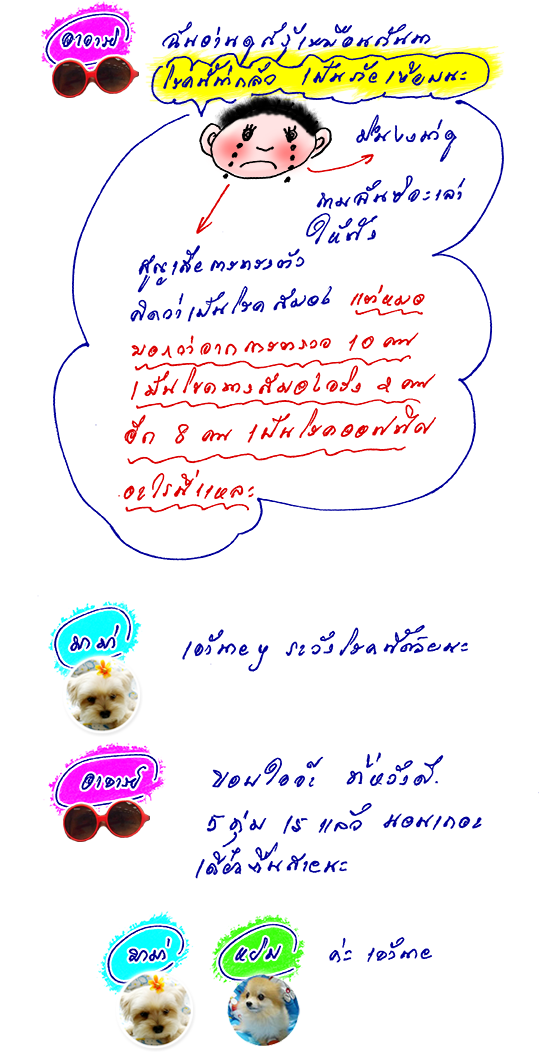 อาจารย์
ฉันอ่านดูก็รู้เหมือนกันนา
โรคนี้น่ากลัว เป็นภัยเงียบนะ
ตามฉันซิจะเล่า
ให้ฟัง
สูญเสียการทรงตัว
คิดว่าเป็นโรคสมอง แต่หมอ
บอกว่าจากการตรวจ 10 คน
เป็นโรคทางสมองจริง 2 คน
อีก 8 คน เป็นโรคออฟฟิศ
อะไรนี่แหละ
มาม่า
เจ้านาย ๆ ระวังโรคนี้ด้วยนะ
อาจารย์
ขอบใจจ้ะ ที่หวังดี
5 ทุ่ม 15 แล้ว นอนเถอะ
เดี๋ยวตื่นสายนะ
มาม่า
หยิม
ค่ะ เจ้านาย